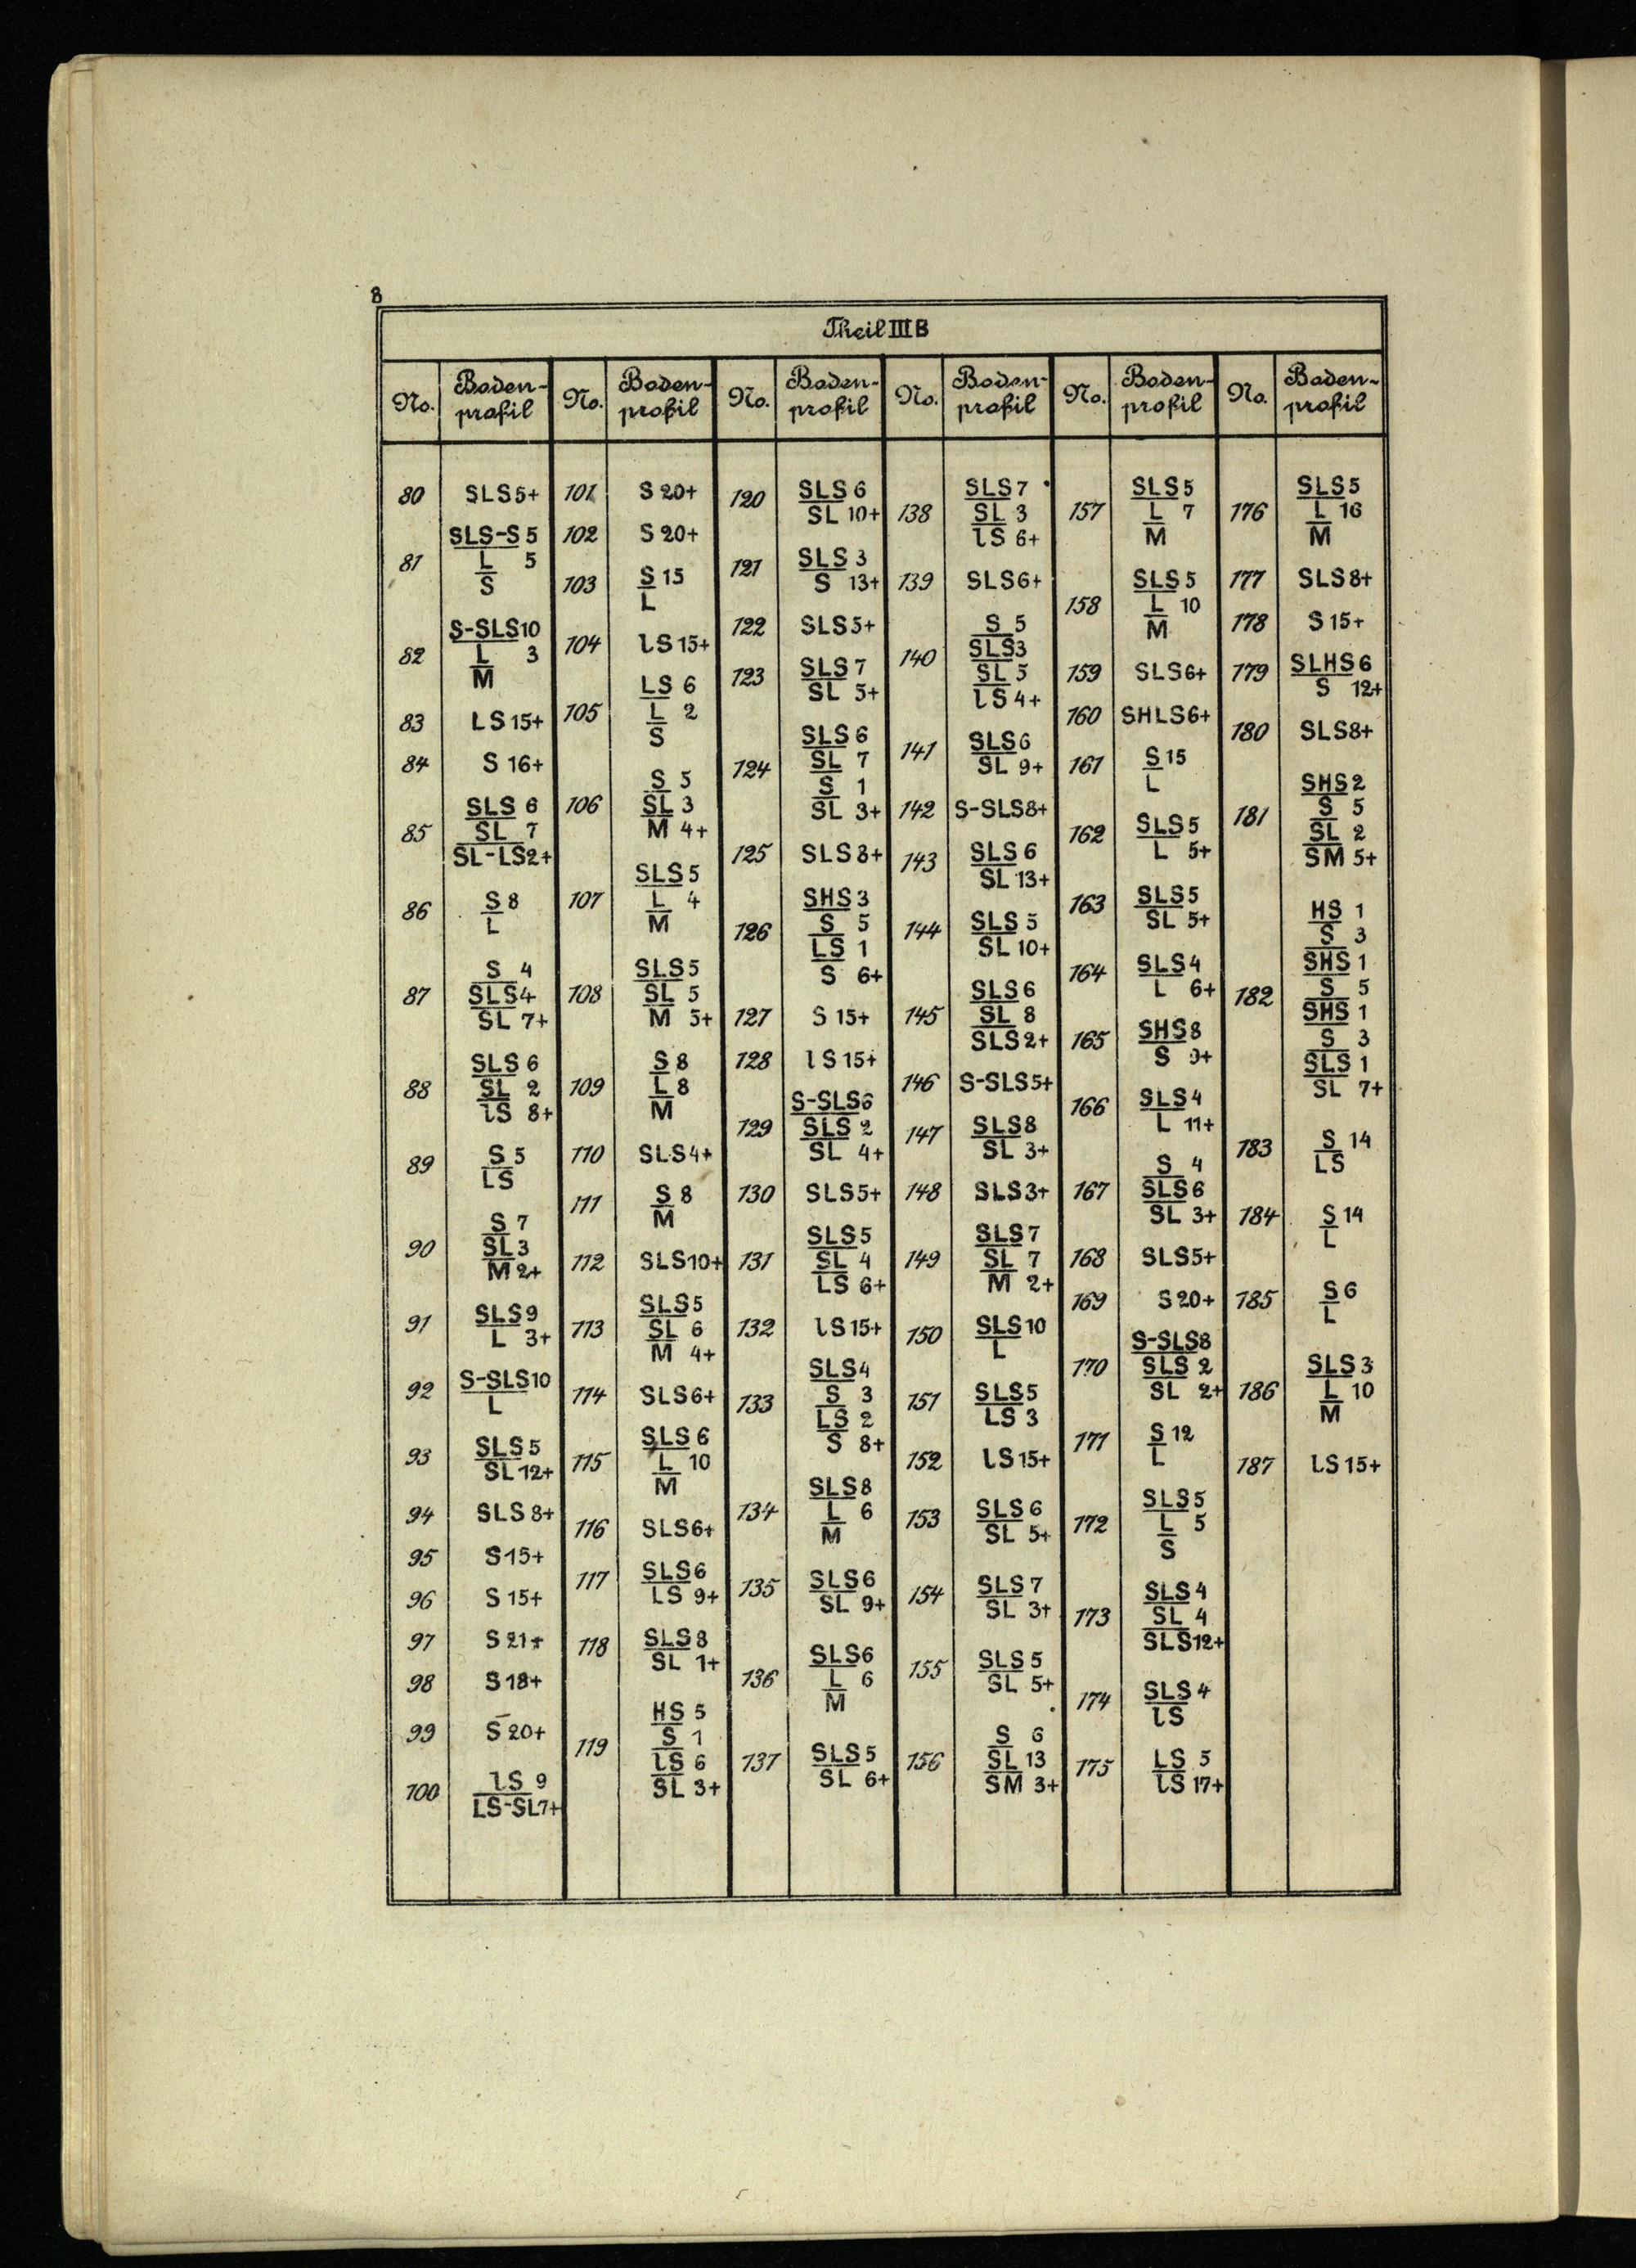 8
Theil III B
No. Boden-profil No. Boden-profil No. Boden-profil No. Boden-profil No. Boden-profil No. Boden-profil
80 SLS 5+
81 SLS-S 5
L 5
S
82 S-SLS 10
L 3
M
83 LS 15+
84 S 16+
85 SLS 6
SL 7
SL-LS 2+
86 S 8
L
87 S 4
SLS 4
SL 7+
88 SLS 6
SL 2
lS 8+
89 S 5
LS
90 S 7
SL 3
M 2+
91 SLS 9
L 3+
92 S-SLS 10
L
93 SLS 5
SL 12+
94 SLS 8+
95 S 15+
96 S 15+
97 S 21+
98 S 18+
99 S 20+
100 lS 9
LS-SL 7+
101 S 20+
102 S 20+
103 S 15
L
104 lS 15+
105 LS 6
L 2
S
106 S 5
SL 3
M 4+
107 SLS 5
L 4
M
108 SLS 5
SL 5
M 5+
109 S 8
L 8
M
110 SLS 4+
111 S 8
M
112 SLS 10+
113 SLS 5
SL 6
M 4+
114 SLS 6+
115 SLS 6
L 10
M
116 SLS 6+
117 SLS 6
LS 9+
118 SLS 8
SL 1+
119 HS 5
S 1
lS 6
SL 3+
120 SLS 6
SL 10+
121 SLS 3
S 13+
122 SLS 5+
123 SLS 7
SL 5+
124 SLS 6
SL 7
S 1
SL 3+
125 SLS 8+
126 SHS 3
S 5
LS 1
S 6+
127 S 15+
128 lS 15+
129 S-SLS 6
SLS 2
SL 4+
130 SLS 5+
131 SLS 5
SL 4
LS 6+
132 lS 15+
133 SLS 4
S 3
LS 2
S 8+
134 SLS 8
L 6
M
135 SLS 6
SL 9+
136 SLS 6
L 6
M
137 SLS 5
SL 6+
138 SLS 7
SL 3
lS 6+
139 SLS 6+
140 S 5
SLS 3
SL 5
lS 4+
141 SLS 6
SL 9+
142 S-SLS 8+
143 SLS 6
SL 13+
144 SLS 5
SL 10+
145 SLS 6
SL 8
SLS 2+
146 S-SLS 5+
147 SLS 8
SL 3+
148 SLS 3+
149 SLS 7
SL 7
M 2+
150 SLS 10
L
151 SLS 5
LS 3
152 lS 15+
153 SLS 6
SL 5+
154 SLS 7
SL 3+
155 SLS 5
SL 5+
156 S 6
SL 13
SM 3+
157 SLS 5
L 7
M
158 SLS 5
L 10
M
159 SLS 6+
160 SHLS 6+
161 S 15
L
162 SLS 5
L 5+
163 SLS 5
SL 5+
164 SLS 4
L 6+
165 SHS 8
S 9+
166 SLS 4
L 11+
167 S 4
SLS 6
SL 3+
168 SLS 5+
169 S 20+
170 S-SLS 8
SLS 2
SL 2+
171 S 12
L
172 SLS 5
L 5
S
173 SLS 4
SL 4
SLS 12+
174 SLS 4
lS
175 LS 5
lS 17+
176 SLS 5
L 16
M
177 SLS 8+
178 S 15+
179 SLHS 6
S 12+
180 SLS 8+
181 SHS 2
S 5
SL 2
SM 5+
182 HS 1
S 3
SHS 1
S 5
SHS 1
S 3
SLS 1
SL 7+
183 S 14
LS
184 S 14
L
185 S 6
L
186 SLS 3
L 10
M
187 lS 15+